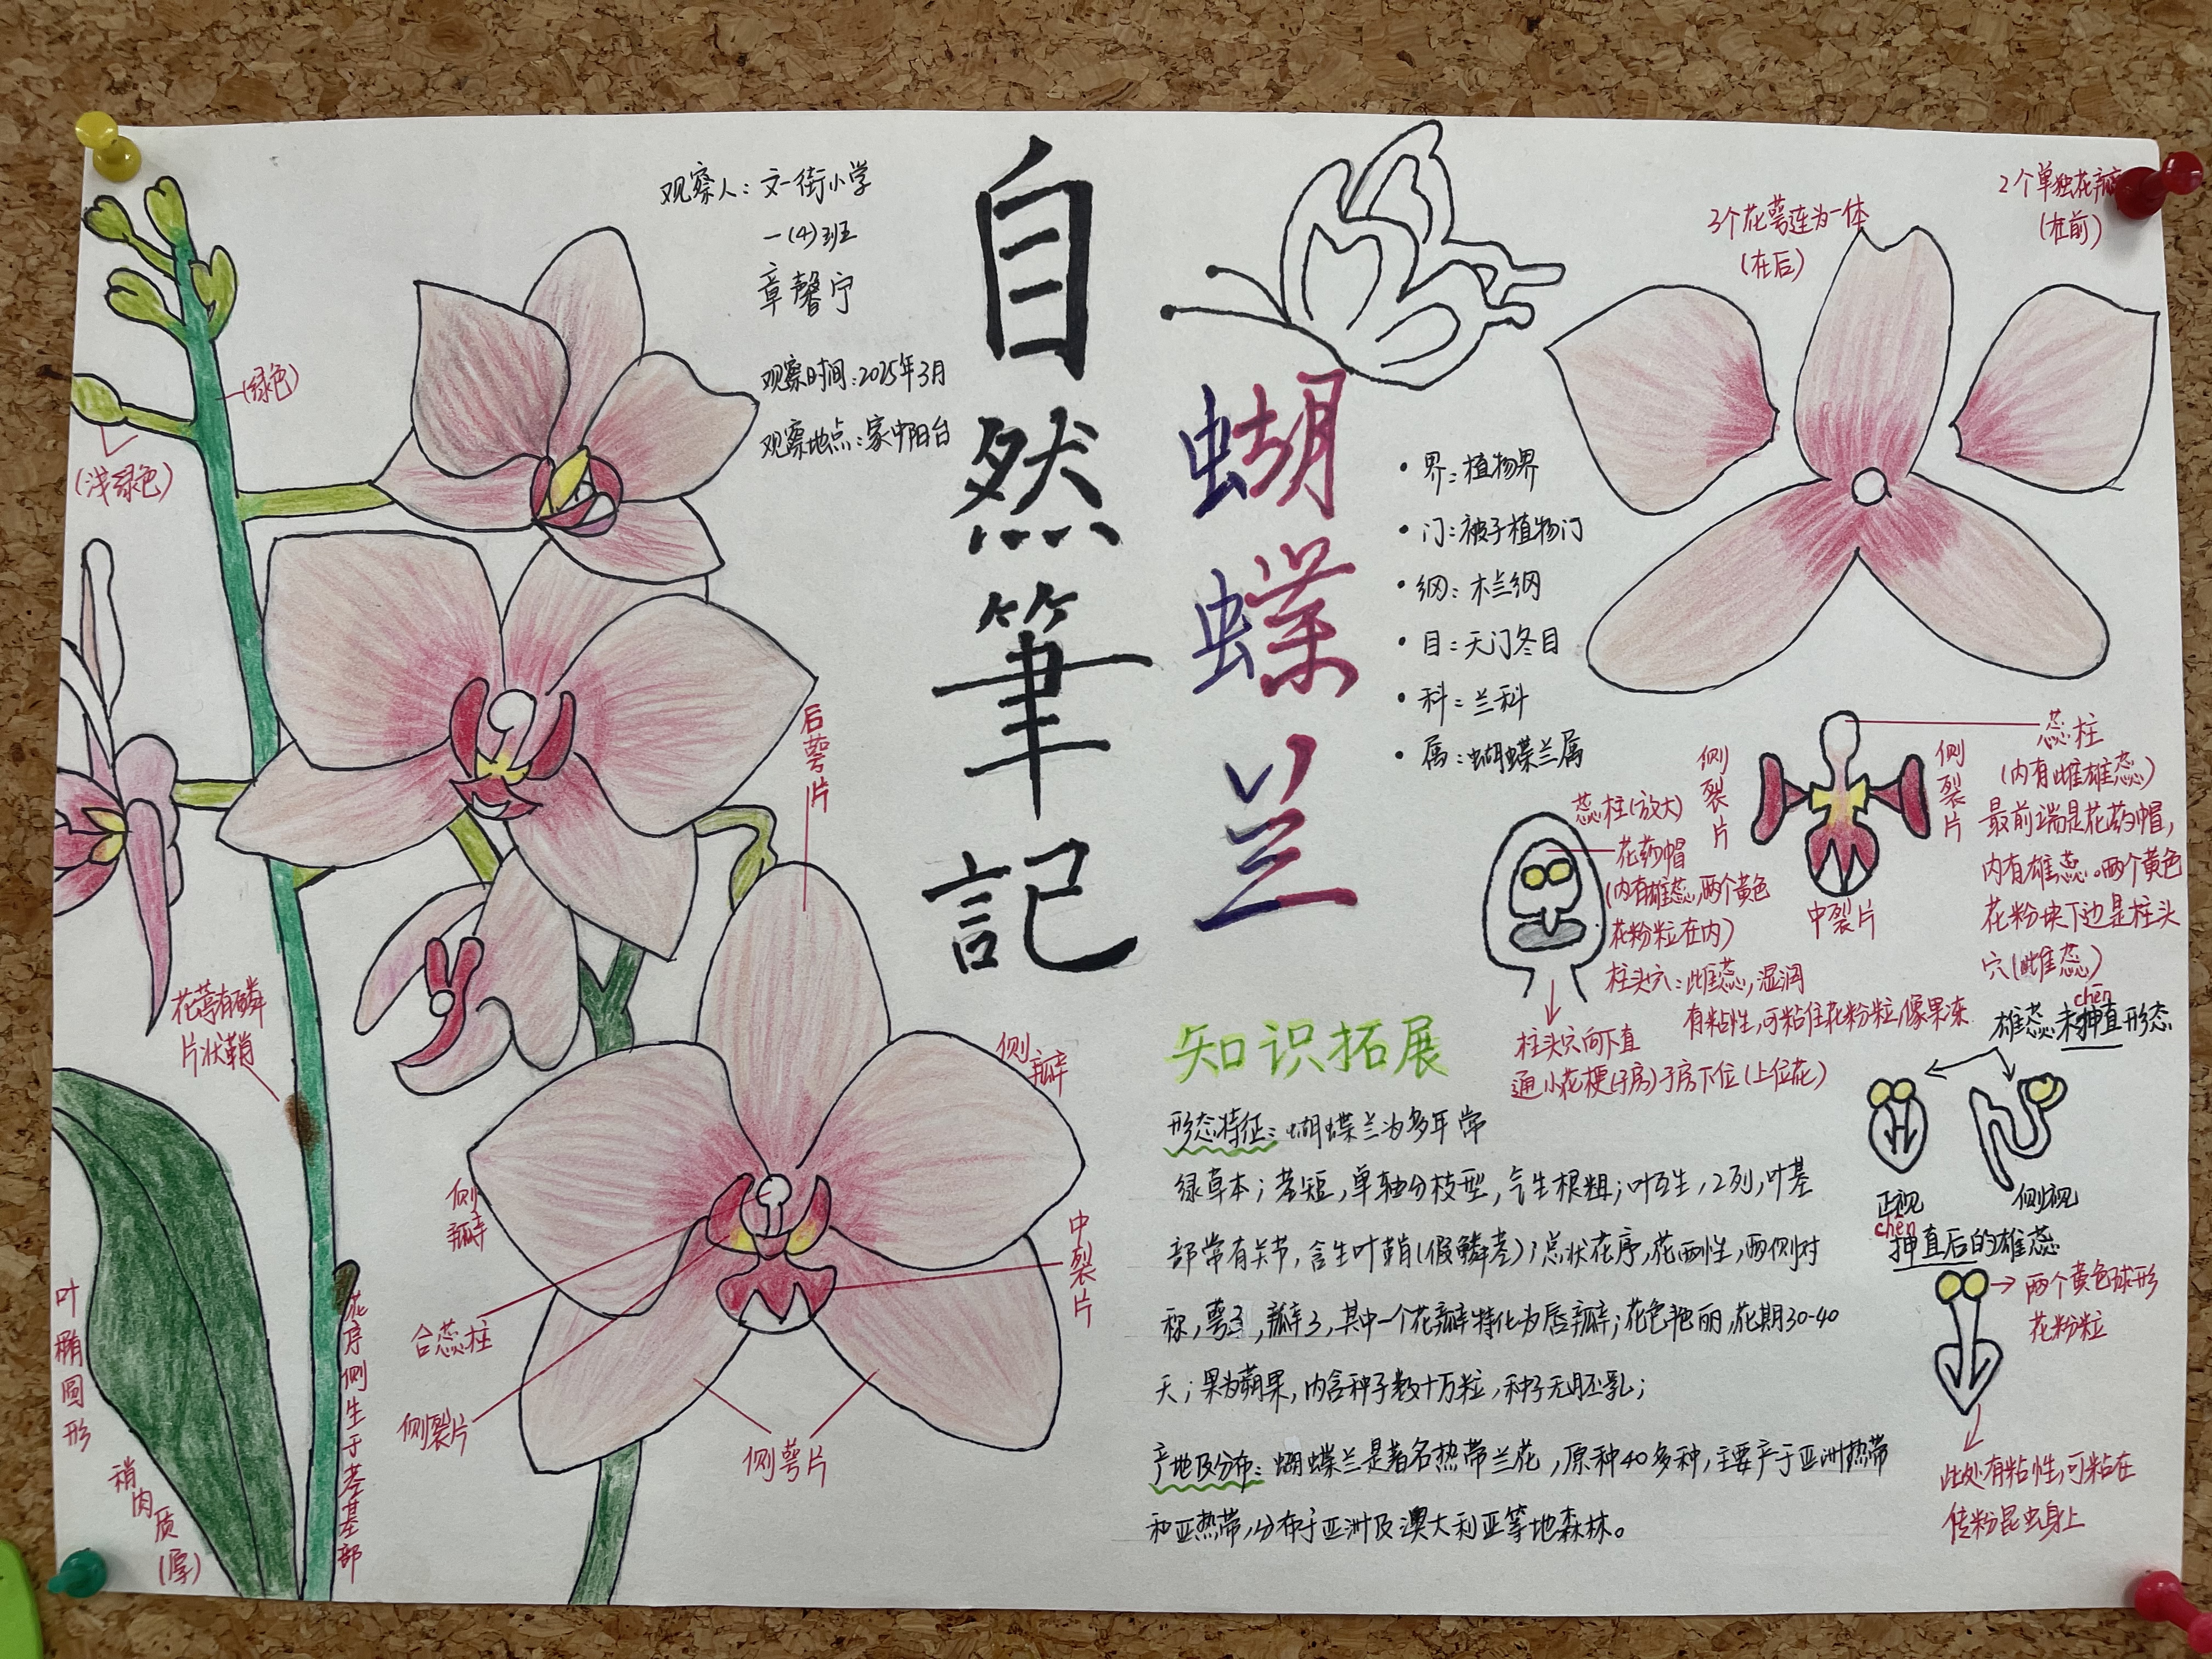 观察人：文一街小学
一(4)班
章馨宁
观察时间：2025年3月
观察地点：家中阳台
自然筆記
蝴蝶兰
· 界：植物界
· 门：被子植物门
· 纲：木兰纲
· 目：天门冬目
· 科：兰科
· 属：蝴蝶兰属
3个花萼连为一体
(在后)
2个单独花瓣
(在前)
(绿色)
(浅绿色)
花萼有磷
片状鞘
叶椭圆形
稍肉质(厚)
花序侧生于茎基部
后萼片
侧瓣
侧瓣
中裂片
合蕊柱
侧裂片
侧萼片
侧裂片
侧裂片
中裂片
蕊柱
(内有雌雄蕊)
最前端是花药帽，
内有雄蕊。两个黄色
花粉块下边是柱头
穴(雌蕊)
蕊柱(放大)
花药帽
(内有雄蕊，两个黄色
花粉粒在内)
柱头穴：雌蕊，湿润
有粘性，可粘住花粉粒，像果冻
柱头穴向下直
通小花梗(子房)子房下位(上位花)
chēn
雄蕊未抻直形态
正视
侧视
chēn
抻直后的雄蕊
两个黄色球形
花粉粒
此处有粘性，可粘在
传粉昆虫身上
知识拓展
形态特征：蝴蝶兰为多年常
绿草本；茎短，单轴分枝型，气生根粗；叶互生，2列，叶基
部常有关节，含生叶鞘(假鳞茎)；总状花序，花两性，两侧对
称，萼3，瓣3，其中一个花瓣特化为唇瓣；花色艳丽，花期30-40
天；果为蒴果，内含种子数十万粒，种子无胚乳；
产地及分布：蝴蝶兰是著名热带兰花，原种40多种，主要产于亚洲热带
和亚热带，分布于亚洲及澳大利亚等地森林。